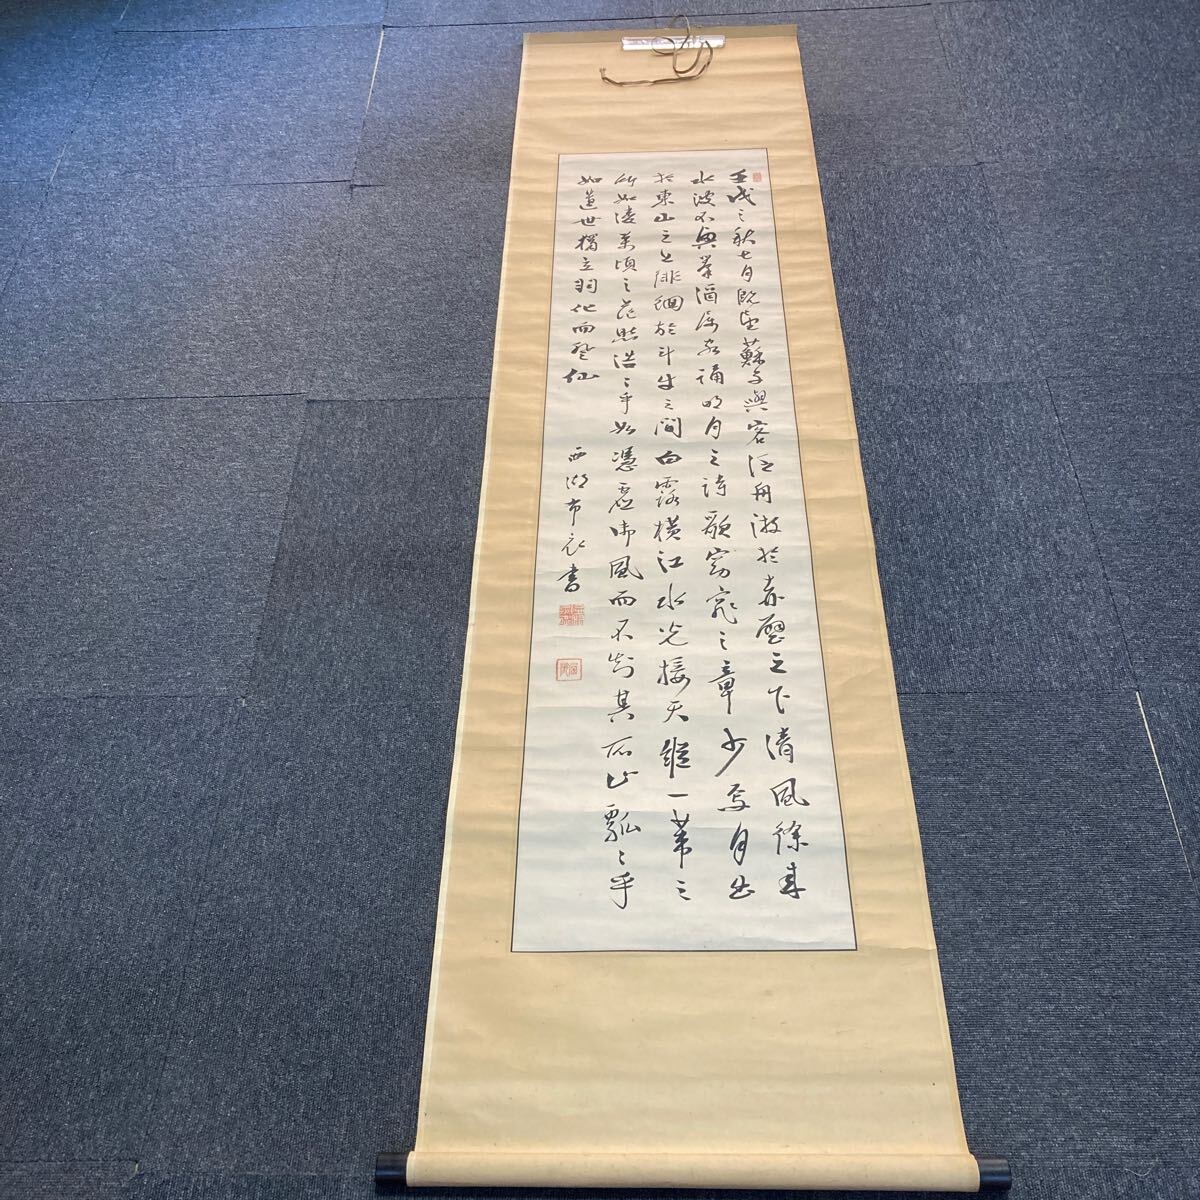 壬戌之秋七月既望蘇子與客泛舟游於赤壁之下清風徐来
水波不興擧酒属客誦明月之詩歌窈窕之章少焉月出
於東山之上徘徊於斗牛之間白露横江水光接天縦一葦之
所如凌萬頃之茫然浩々乎如憑虚御風而不知其所止飄々乎
如遺世獨立羽化而登仙
西湖布衣書